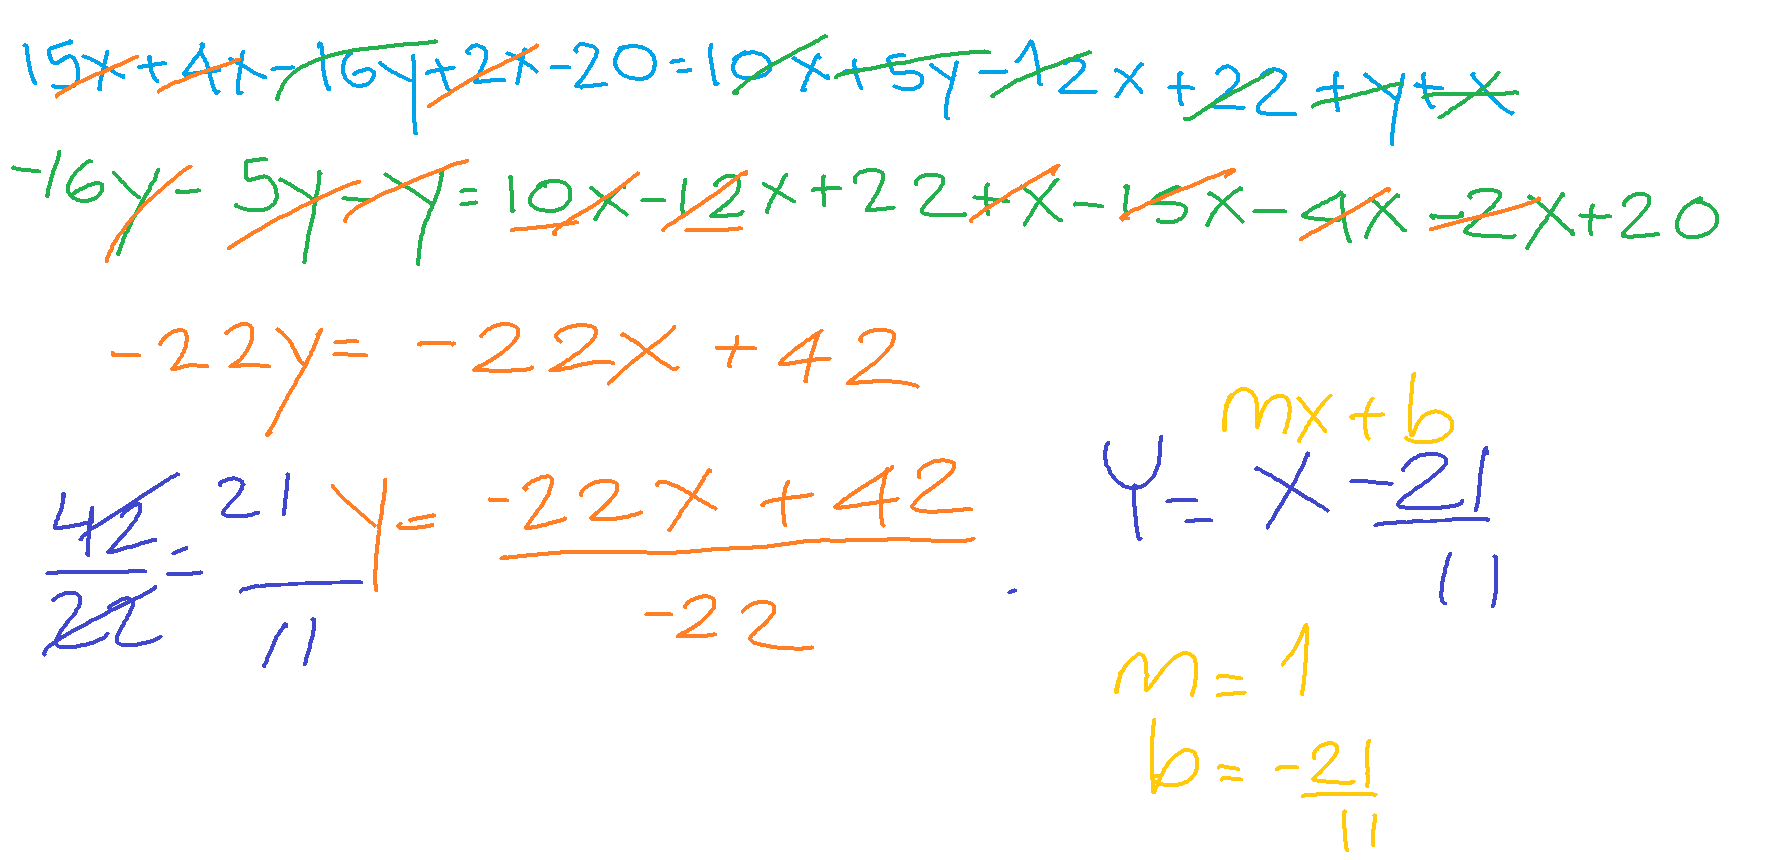 15x+4x-16y+2x-20=10x+5y-12x+22+y+x
-16y-5y-y=10x-12x+22+x-15x-4x-2x+20
-22y=-22x+42
mx+b
42/22=21/11
y=(-22x+42)/-22
y=x-21/11
m=1
b=-21/11